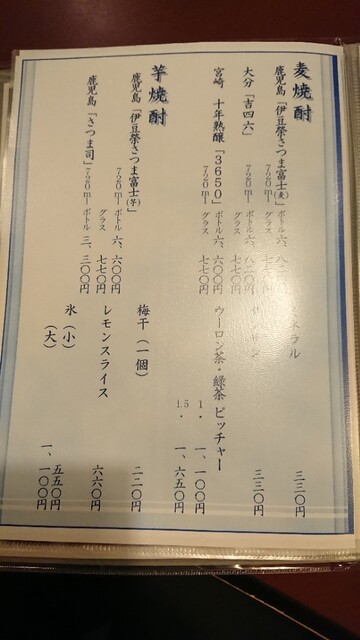 麦焼酎
鹿児島「伊豆榮さつま富士(麦)」
720ml ボトル 六、八二
グラス 七七〇円
大分「吉四六」
720ml ボトル 六、八二〇円
グラス 七七〇円
宮崎 十年熟醸「3650」
720ml ボトル 六、六〇〇円
グラス 七七〇円
芋焼酎
鹿児島「伊豆榮さつま富士(芋)」
720ml ボトル 六、六〇〇円
グラス 七七〇円
鹿児島「さつま司」
720ml ボトル 三、三〇〇円
ネラル 三三〇円
三三〇円
ウーロン茶・緑茶 ピッチャー
1ℓ 一、一〇〇円
1.5ℓ 一、六五〇円
梅干(一個) 二二〇円
レモンスライス 六六〇円
氷(小) 五五〇円
(大) 一、一〇〇円